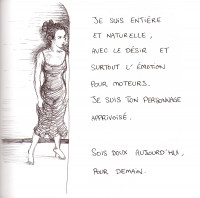 JE SUIS ENTIÈRE
ET NATURELLE,
AVEC LE DÉSIR ET
SURTOUT L'ÉMOTION
POUR MOTEURS.
JE SUIS TON PERSONNAGE
APPRIVOISÉ.
SOIS DOUX AUJOURD'HUI,
POUR DEMAIN.